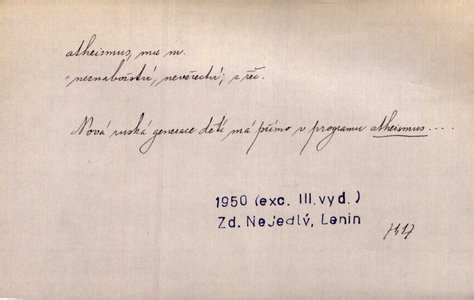 atheismus, mu m.
= neznabožství, nevěrectví; z řec.
Nová ruská generace dětí má přímo v programu atheismus....
1950 (exc. III.vyd.)
Zd. Nejedlý, Lenin